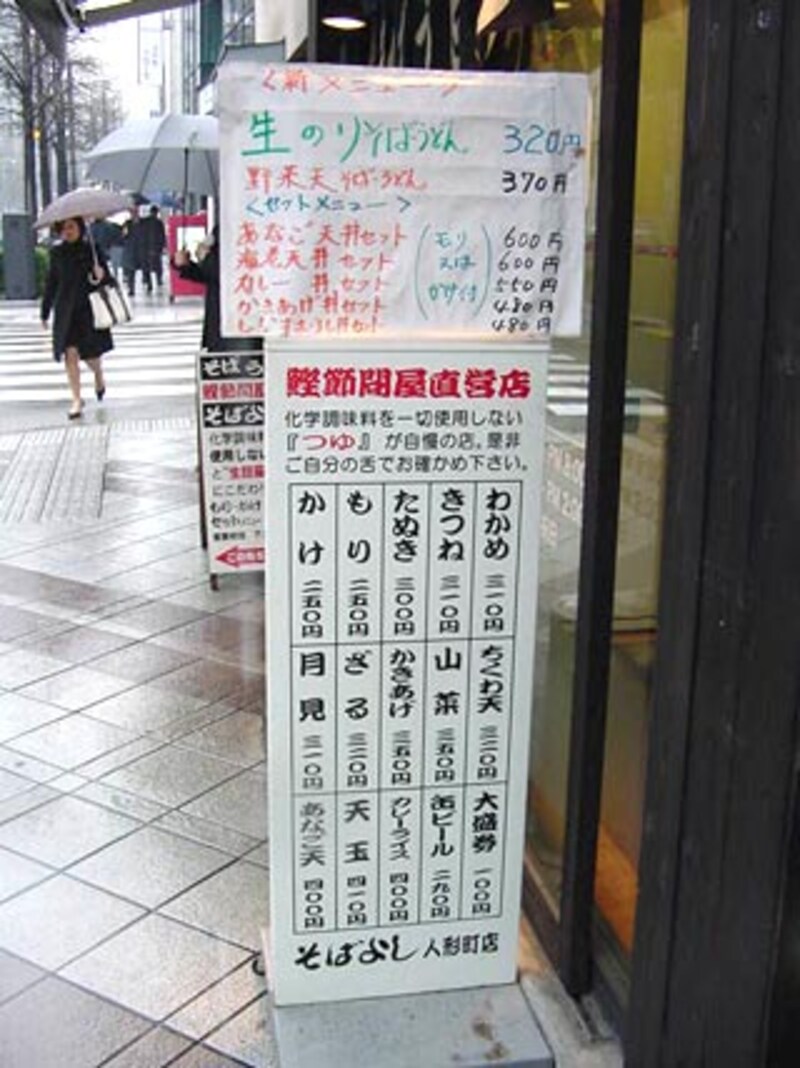 <新メニュー>
生のりそばうどん 320円
野菜天そば・うどん 370円
<セットメニュー>
あなご天丼セット 600円
海老天丼セット 600円
カレー丼セット 550円
かきあげ丼セット 480円
480円
モリ
又は
かけ付
鰹節問屋直営店
化学調味料を一切使用しない
『つゆ』が自慢の店。是非
ご自分の舌でお確かめ下さい。
わかめ 三一〇円
きつね 三一〇円
たぬき 三〇〇円
もり 二五〇円
かけ 二五〇円
ちくわ天 三二〇円
山菜 三五〇円
かきあげ 三五〇円
ざる 三二〇円
月見 三一〇円
大盛券 一〇〇円
缶ビール 二九〇円
カレーライス 四〇〇円
天玉 四一〇円
あなご天 四〇〇円
そばよし 人形町店
そば
鰹節問屋
そばよ
化学調味料
使用しない
にこだわ